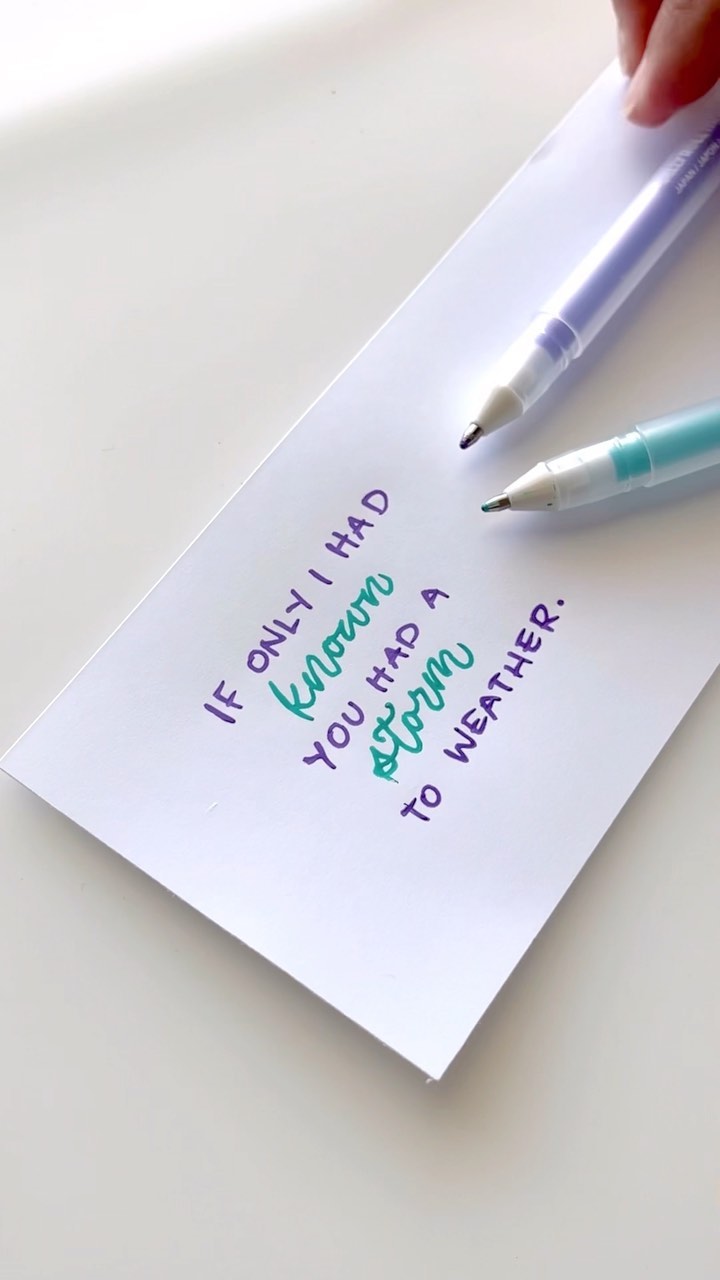 IF ONLY I HAD
known
YOU HAD A
storm
TO WEATHER.
JAPAN / JAPON